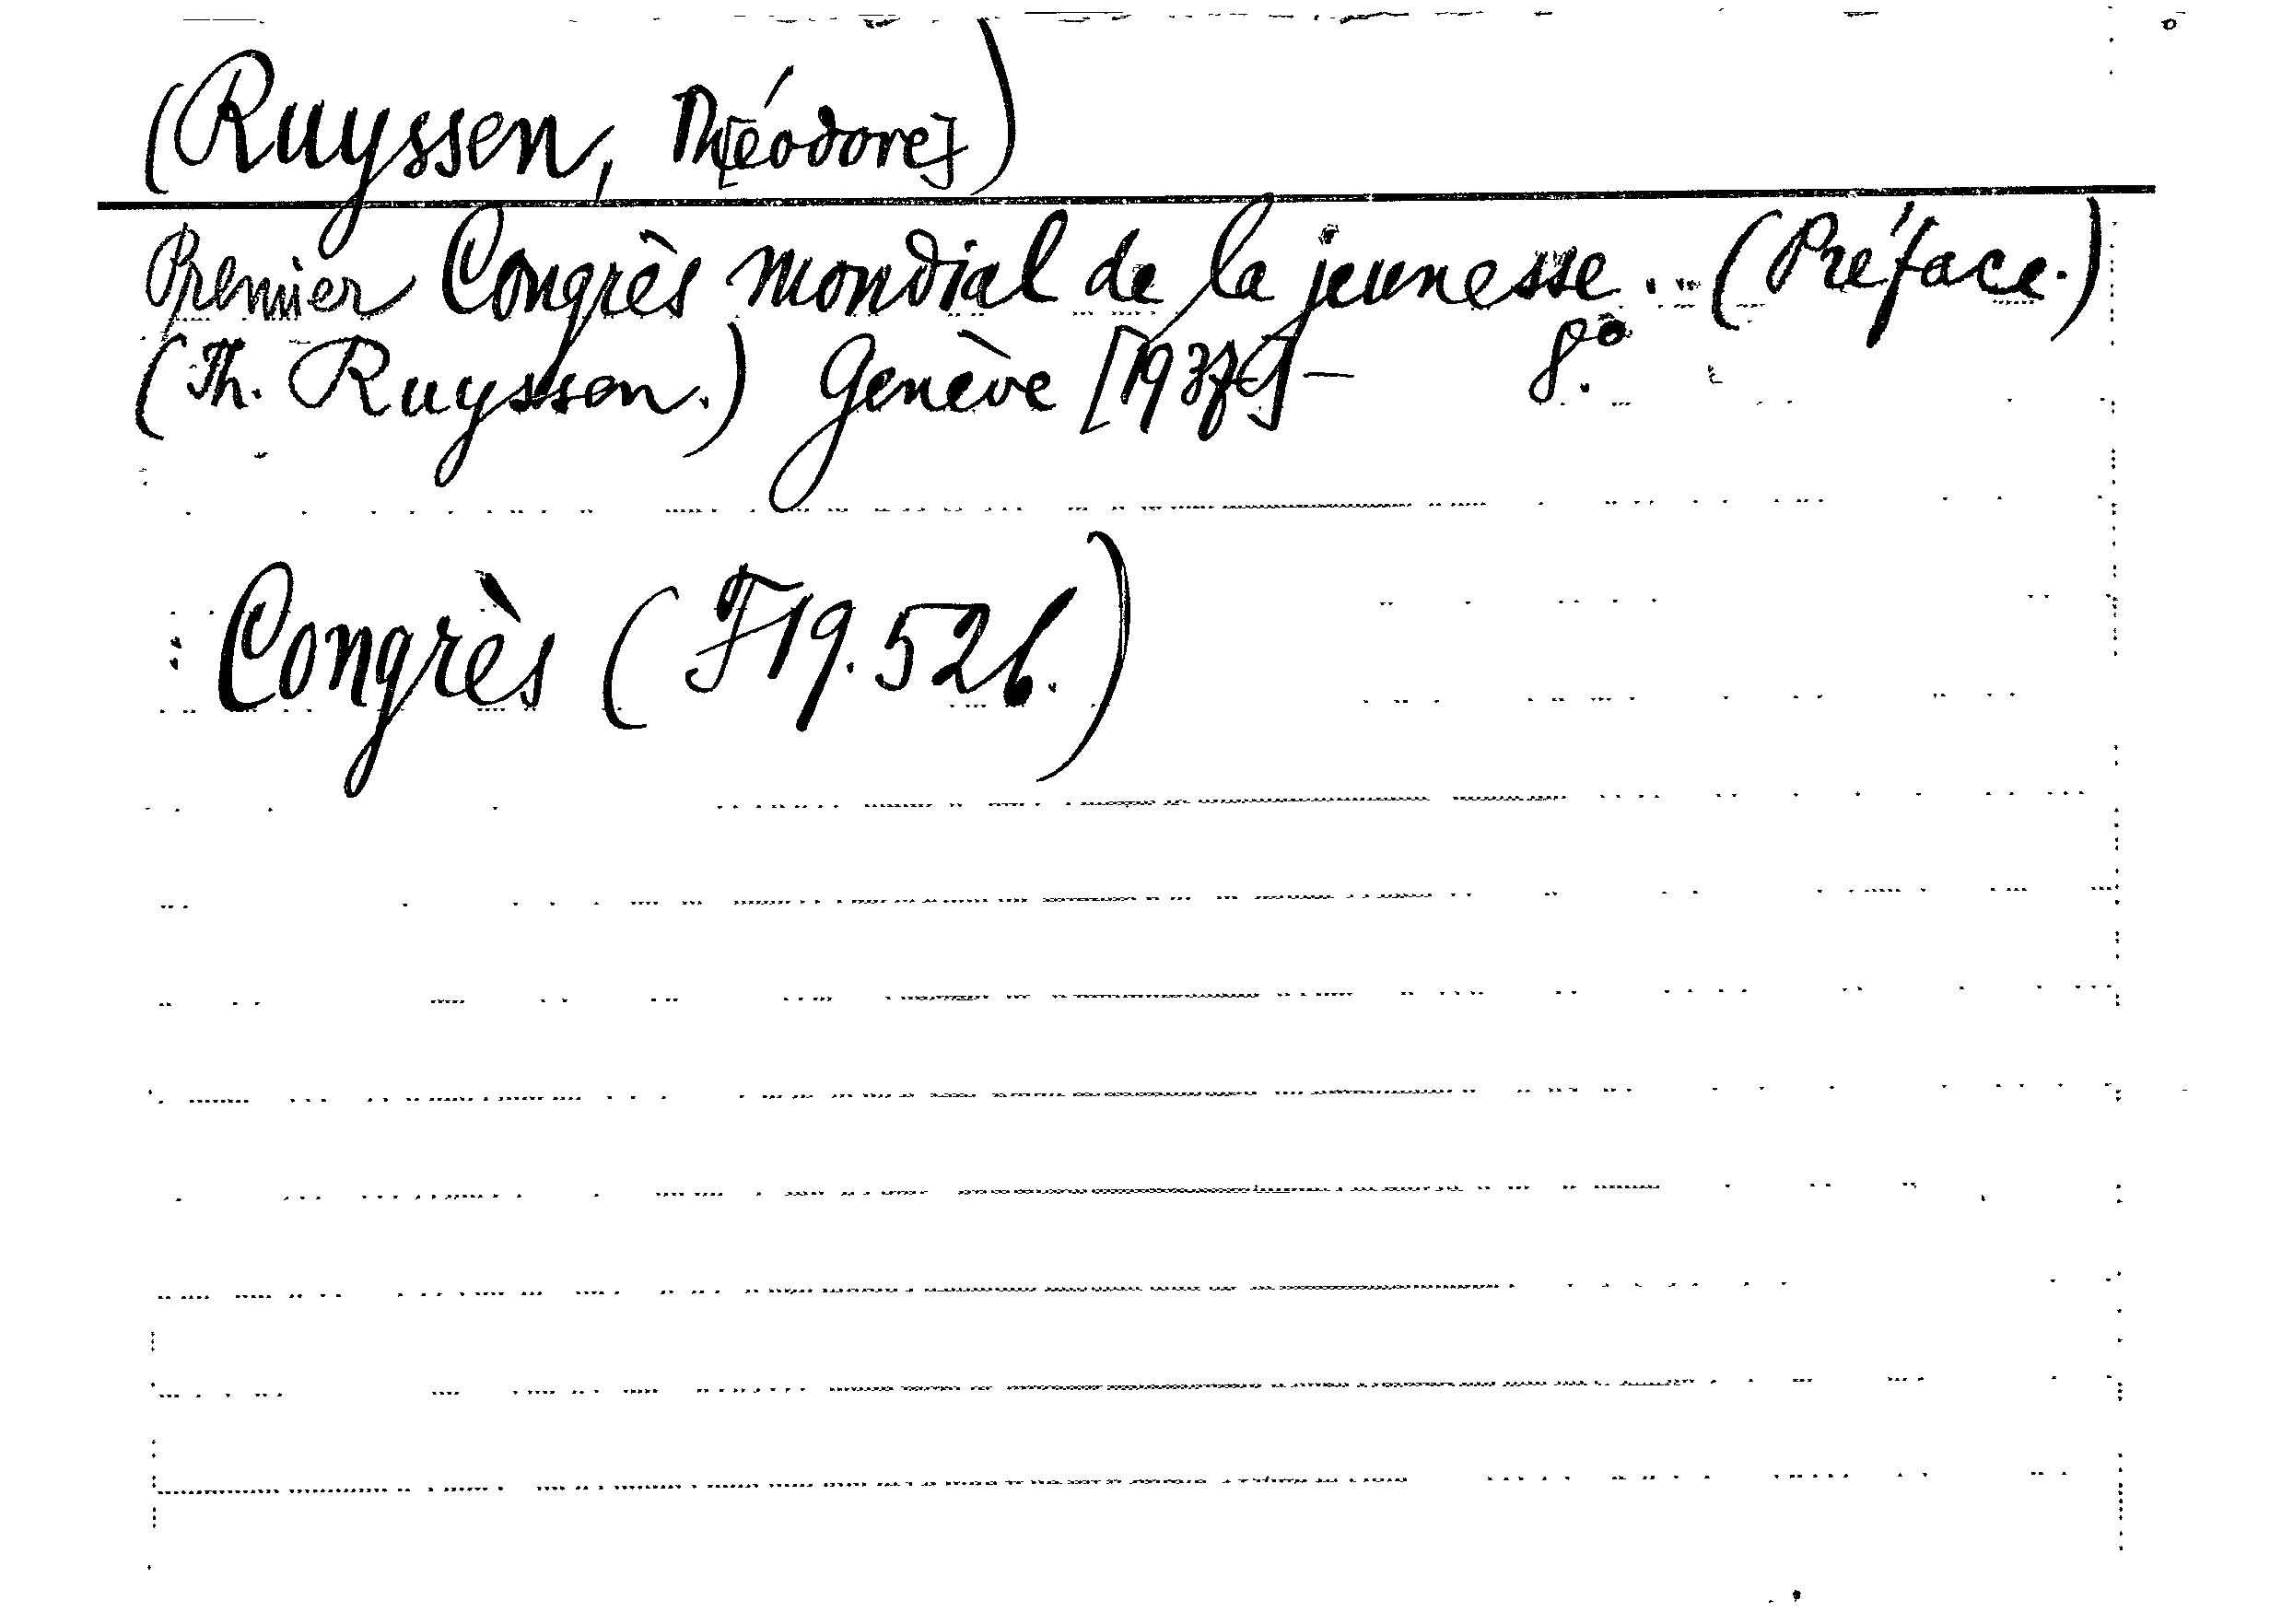 (Ruyssen, Th[éodore])
Premier Congrès mondial de la jeunesse... (Préface.)
(Th. Ruyssen.) Genève [1937] - 8.º
Congrès (F19.526.)